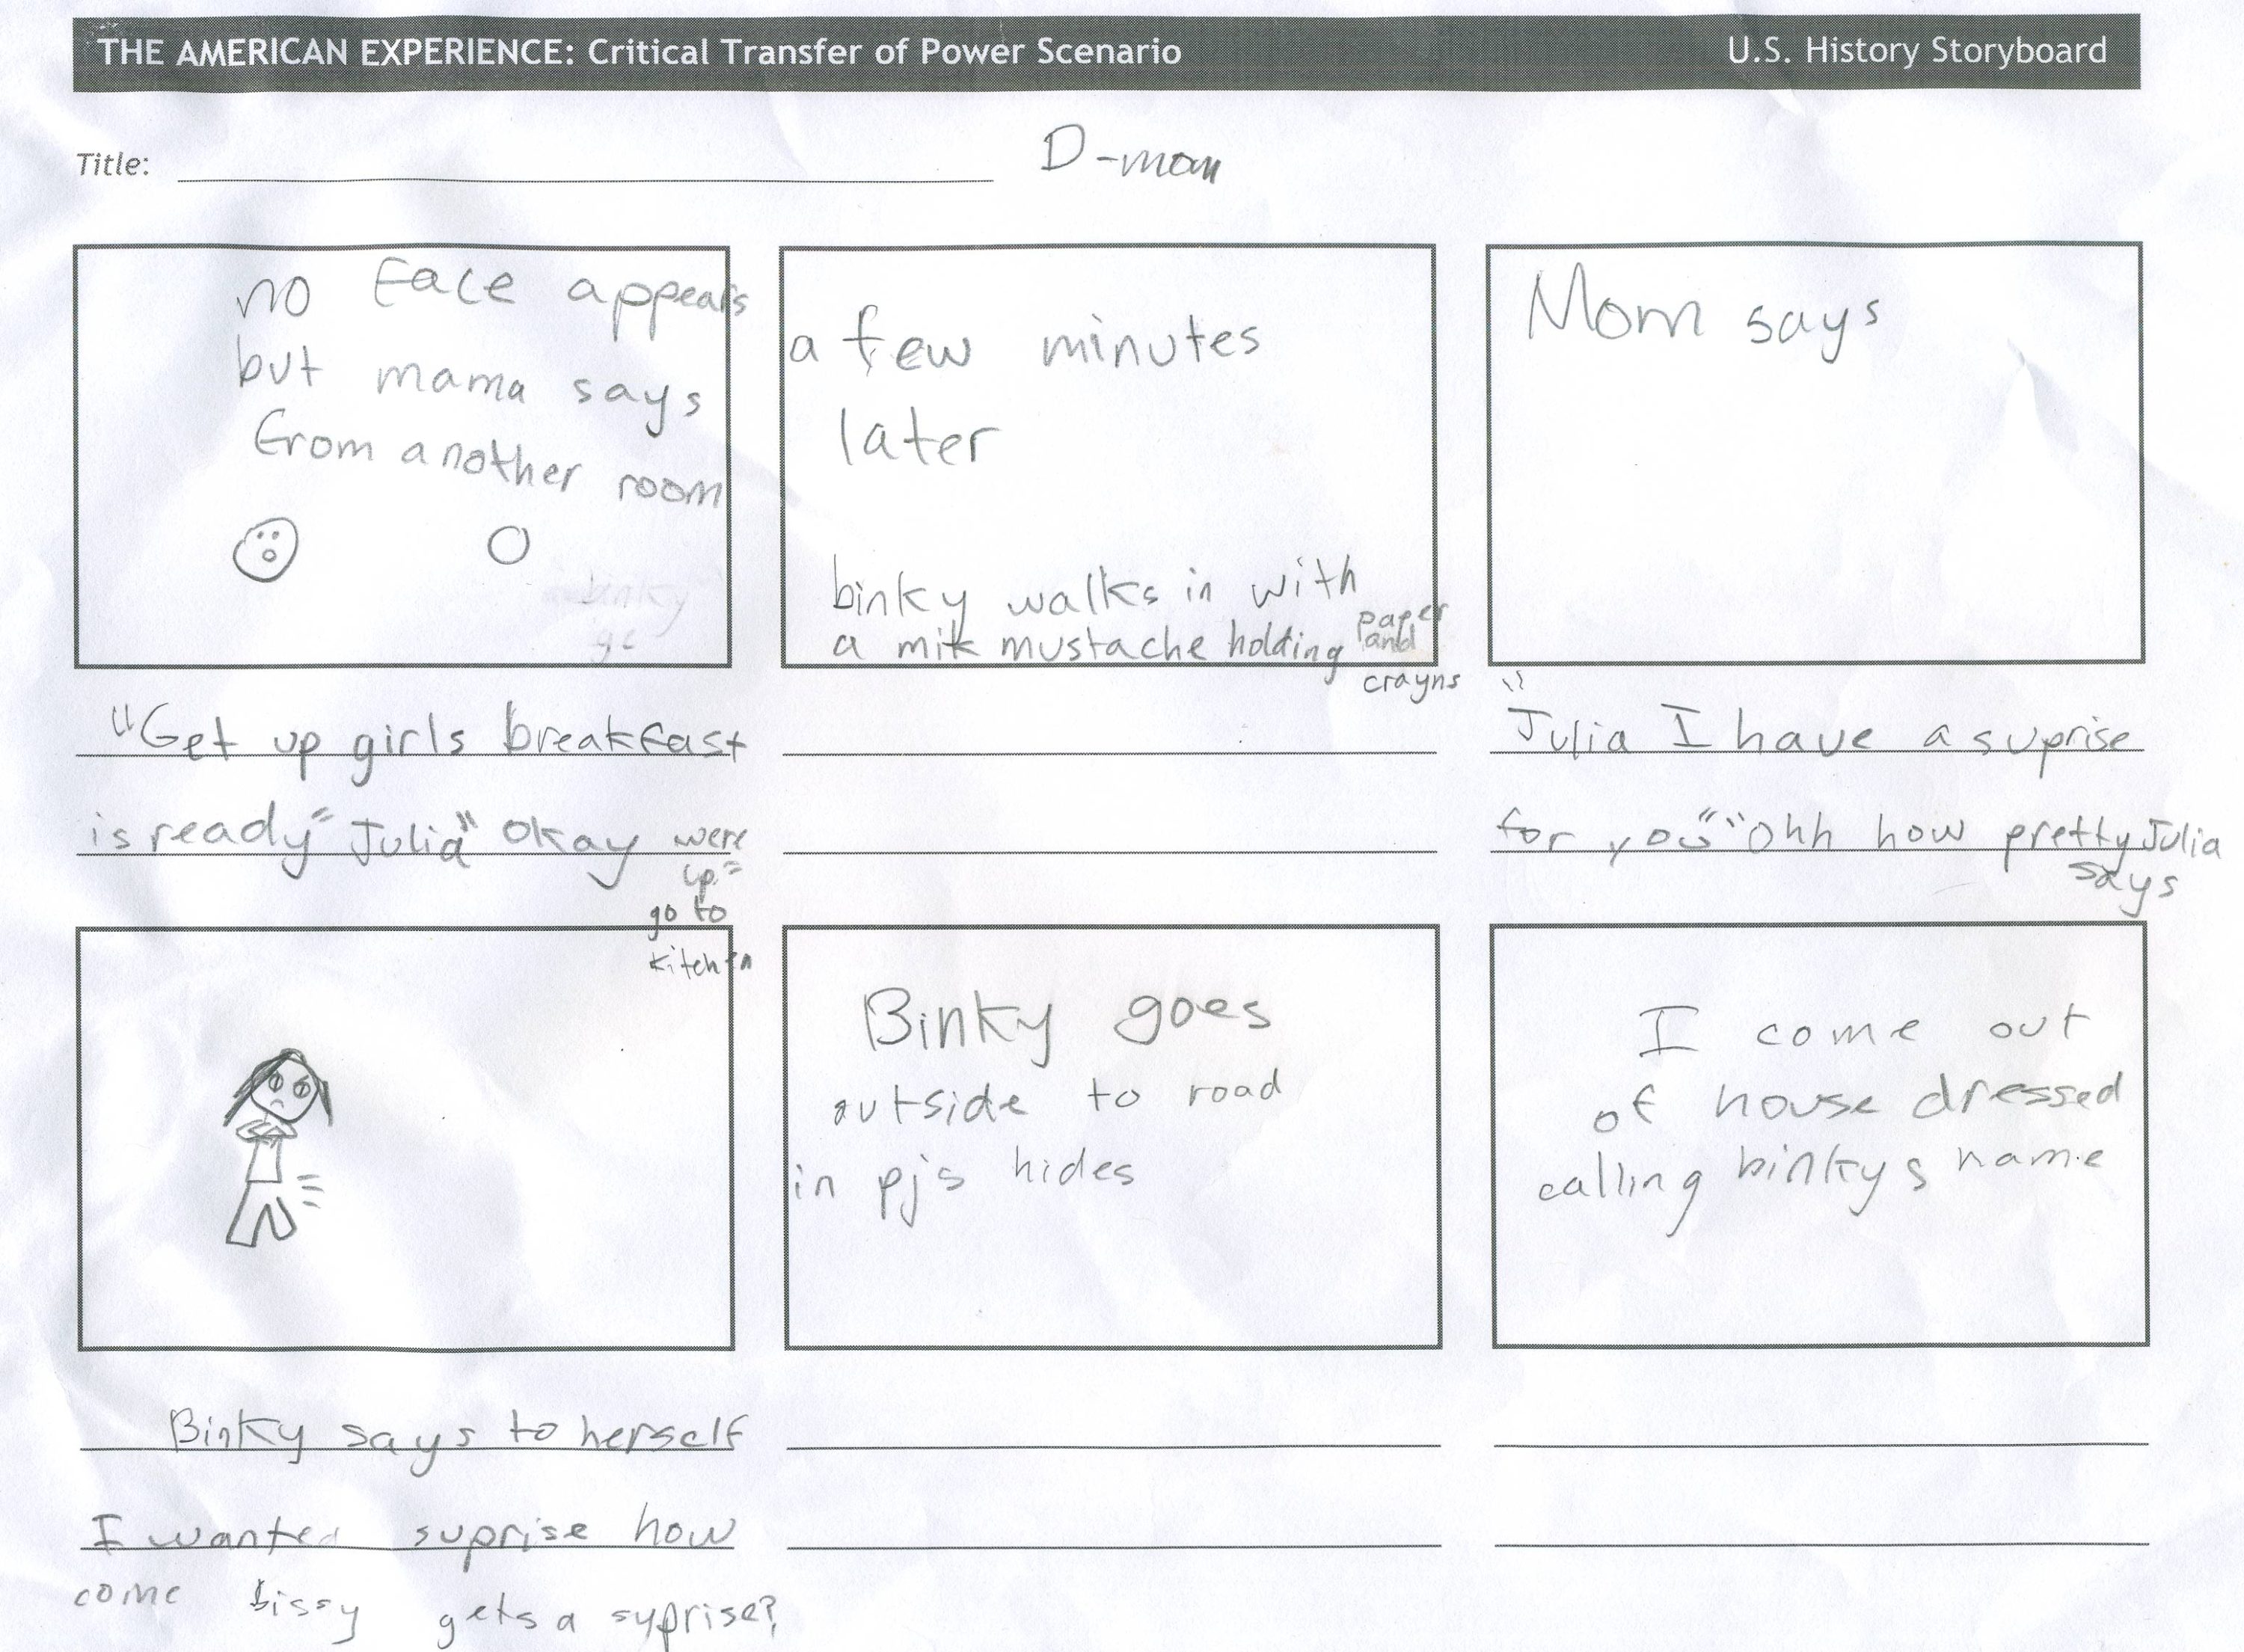 THE AMERICAN EXPERIENCE: Critical Transfer of Power Scenario
U.S. History Storyboard
Title:
D-mom
no face appears
but mama says
from another room
binky
"Get up girls breakfast
is ready" Julia" Okay were
up"
go to
kitchen
a few minutes
later
binky walks in with
a mik mustache holding paper
and
crayns
Mom says
"
Julia I have a suprise
for you" "Ohh how pretty Julia
says
Binky says to herself
I wanted suprise how
come sissy gets a syprise?
Binky goes
outside to road
in pj's hides
I come out
of house dressed
calling binkys name